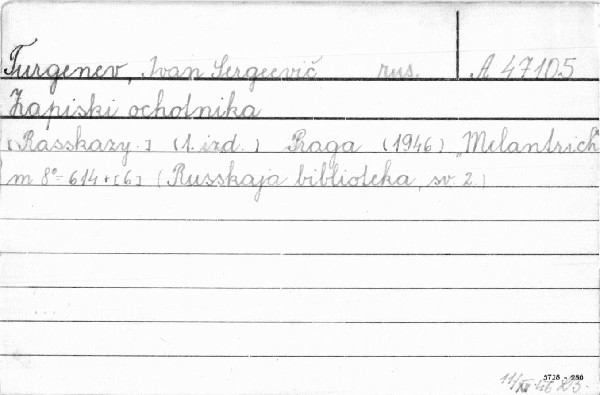 Turgenev, Ivan Sergeevič rus. A 47105
Zapiski ochotnika
[Rasskazy.] (1. izd.) Praga (1946) "Melantrich"
m 8° = 614 + [6] (Russkaja biblioteka, sv. 2.)
5726 - 250
11/XI 46